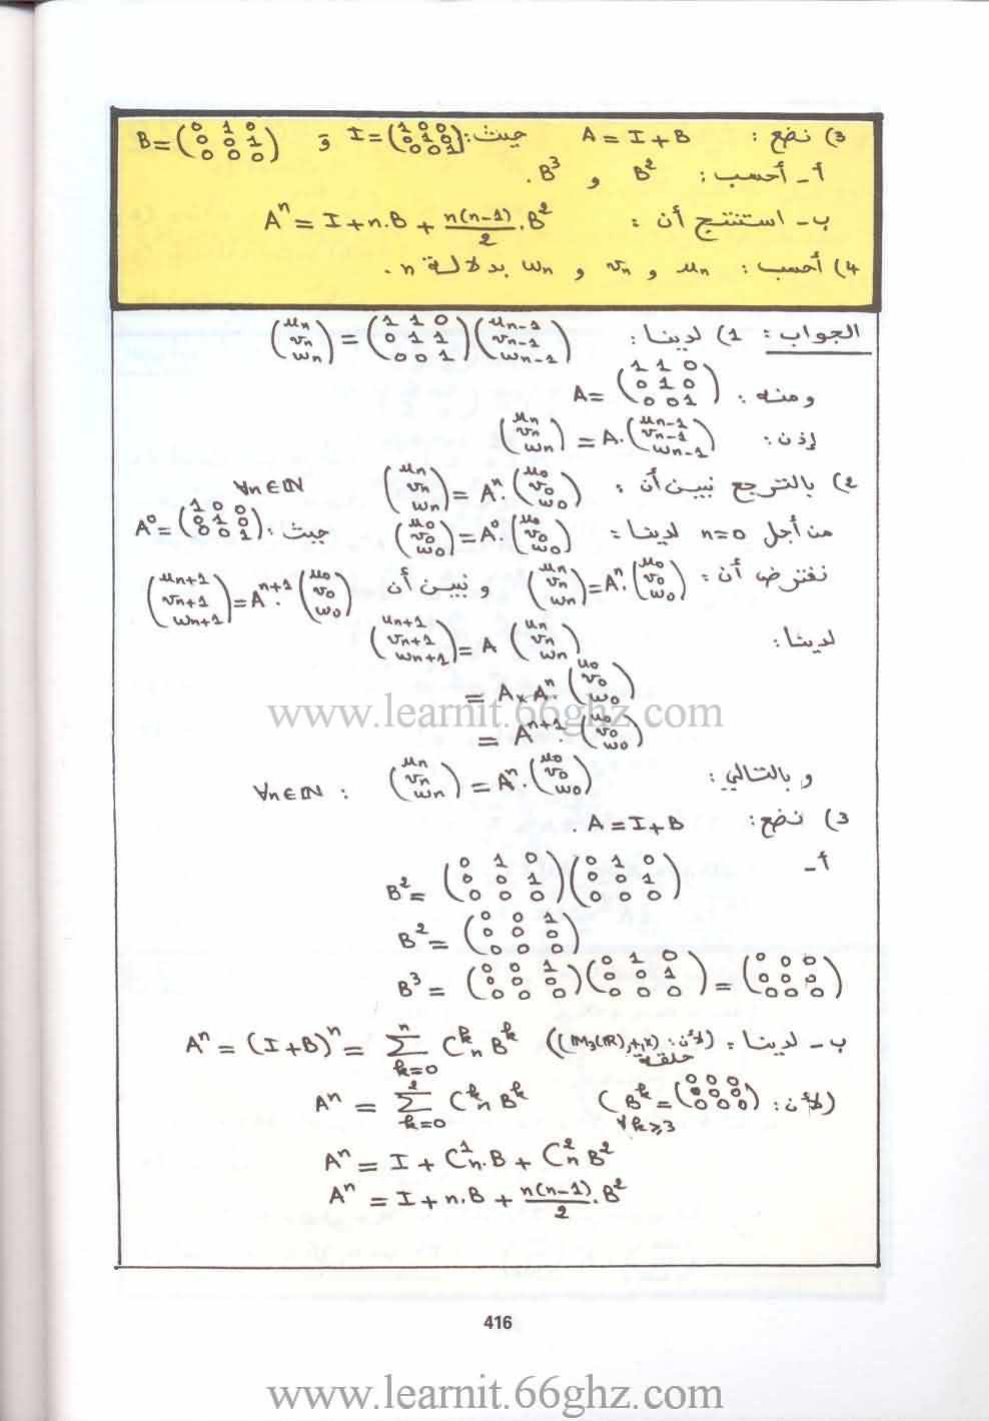 3) نضع : A = I + B حيث : I = (1 0 0 / 0 1 0 / 0 0 1) و B = (0 1 0 / 0 0 1 / 0 0 0)
أ - أحسب : B² و B³ .
ب - استنتج أن : Aⁿ = I + n.B + n(n-1)/2 . B²
4) أحسب : uₙ و vₙ و wₙ بدلالة n .
الجواب : 1) لدينا : (uₙ / vₙ / wₙ) = (1 1 0 / 0 1 1 / 0 0 1)(uₙ₋₁ / vₙ₋₁ / wₙ₋₁)
ومنه : A = (1 1 0 / 0 1 0 / 0 0 1)
إذن : (uₙ / vₙ / wₙ) = A.(uₙ₋₁ / vₙ₋₁ / wₙ₋₁)
2) بالترجع نبين أن : (uₙ / vₙ / wₙ) = Aⁿ.(u₀ / v₀ / w₀) ∀n∈ℕ
من أجل n=0 لدينا : (u₀ / v₀ / w₀) = A⁰.(u₀ / v₀ / w₀) حيث : A⁰ = (1 0 0 / 0 1 0 / 0 0 1)
نفترض أن : (uₙ / vₙ / wₙ) = Aⁿ.(u₀ / v₀ / w₀) ونبين أن (uₙ₊₁ / vₙ₊₁ / wₙ₊₁) = Aⁿ⁺¹.(u₀ / v₀ / w₀)
لدينا : (uₙ₊₁ / vₙ₊₁ / wₙ₊₁) = A (uₙ / vₙ / wₙ)
= A × Aⁿ.(u₀ / v₀ / w₀)
www.learnit.66ghz.com
= Aⁿ⁺¹.(u₀ / v₀ / w₀)
وبالتالي : (uₙ / vₙ / wₙ) = Aⁿ.(u₀ / v₀ / w₀) ∀n∈ℕ :
3) نضع : A = I + B .
أ -
B² = (0 1 0 / 0 0 1 / 0 0 0)(0 1 0 / 0 0 1 / 0 0 0)
B² = (0 0 1 / 0 0 0 / 0 0 0)
B³ = (0 0 1 / 0 0 0 / 0 0 0)(0 1 0 / 0 0 1 / 0 0 0) = (0 0 0 / 0 0 0 / 0 0 0)
ب - لدينا : (لأن : (M₃(ℝ),+,×) حلقة) Aⁿ = (I+B)ⁿ = Σₖ₌₀ⁿ Cₙᵏ Bᵏ
(لأن : Bᵏ = (0 0 0 / 0 0 0 / 0 0 0) ∀k≥3) Aⁿ = Σₖ₌₀² Cₙᵏ Bᵏ
Aⁿ = I + Cₙ¹.B + Cₙ² B²
Aⁿ = I + n.B + n(n-1)/2 . B²
416
www.learnit.66ghz.com